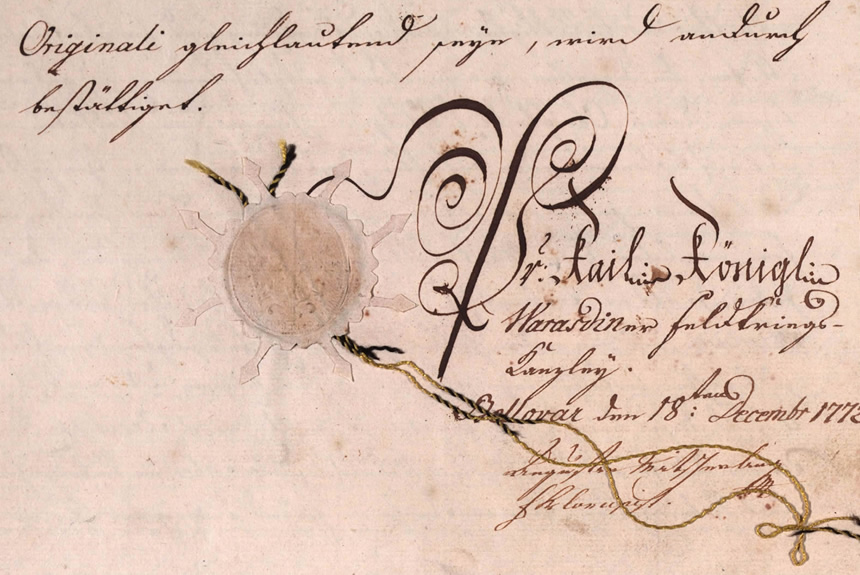 Originali gleichlautend seye, wird andurch
bestättiget.
Pr: Kail: Königln
Warasdiner Feldkriegs-
Kanzley.
Bellovar den 18: Decembr 177